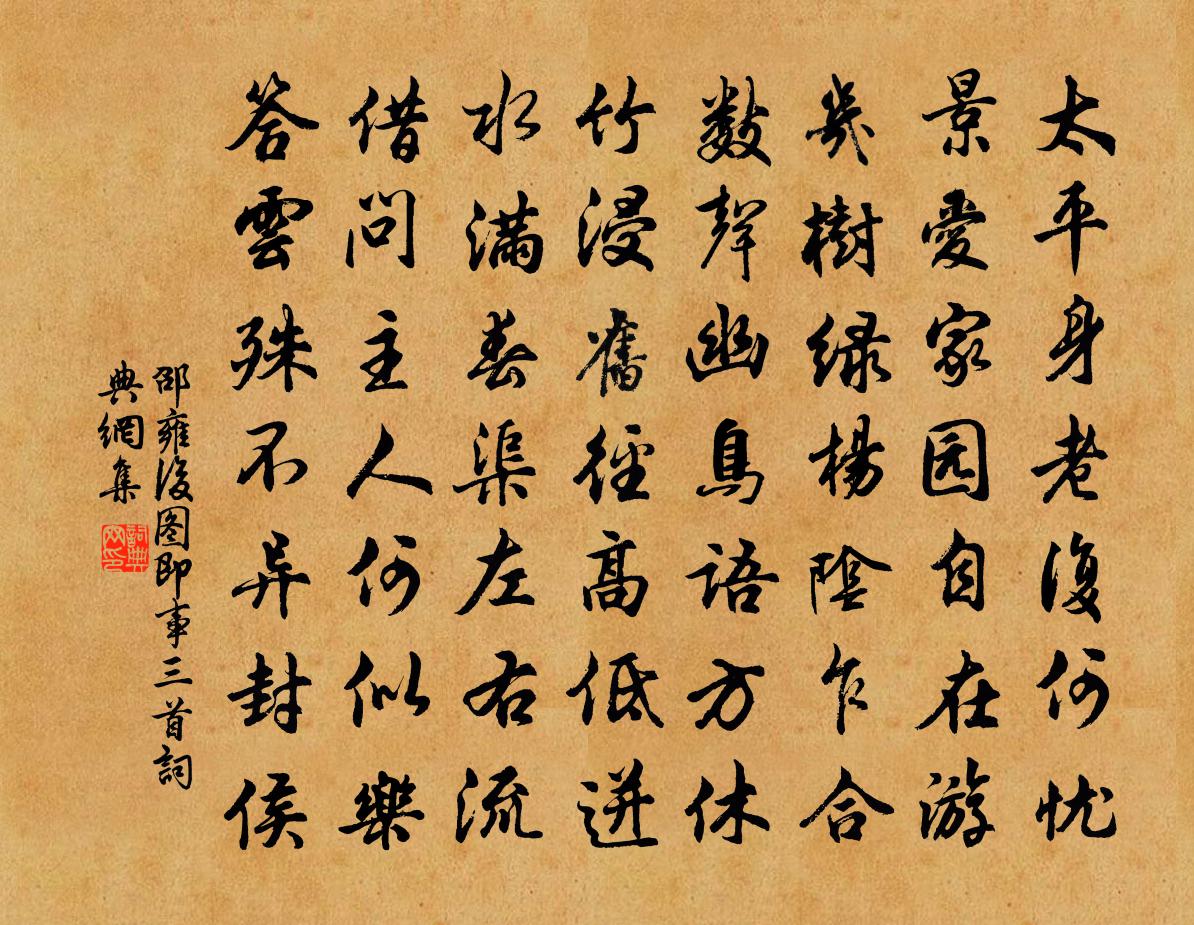 太平身老復何忧
景愛家园自在游
幾樹绿楊陰乍合
數聲幽鳥語方休
竹浸舊徑高低迸
水满春渠左右流
借問主人何似樂
答雲殊不异封侯
邵雍後图即事三首詞
典網集
詞典
网印